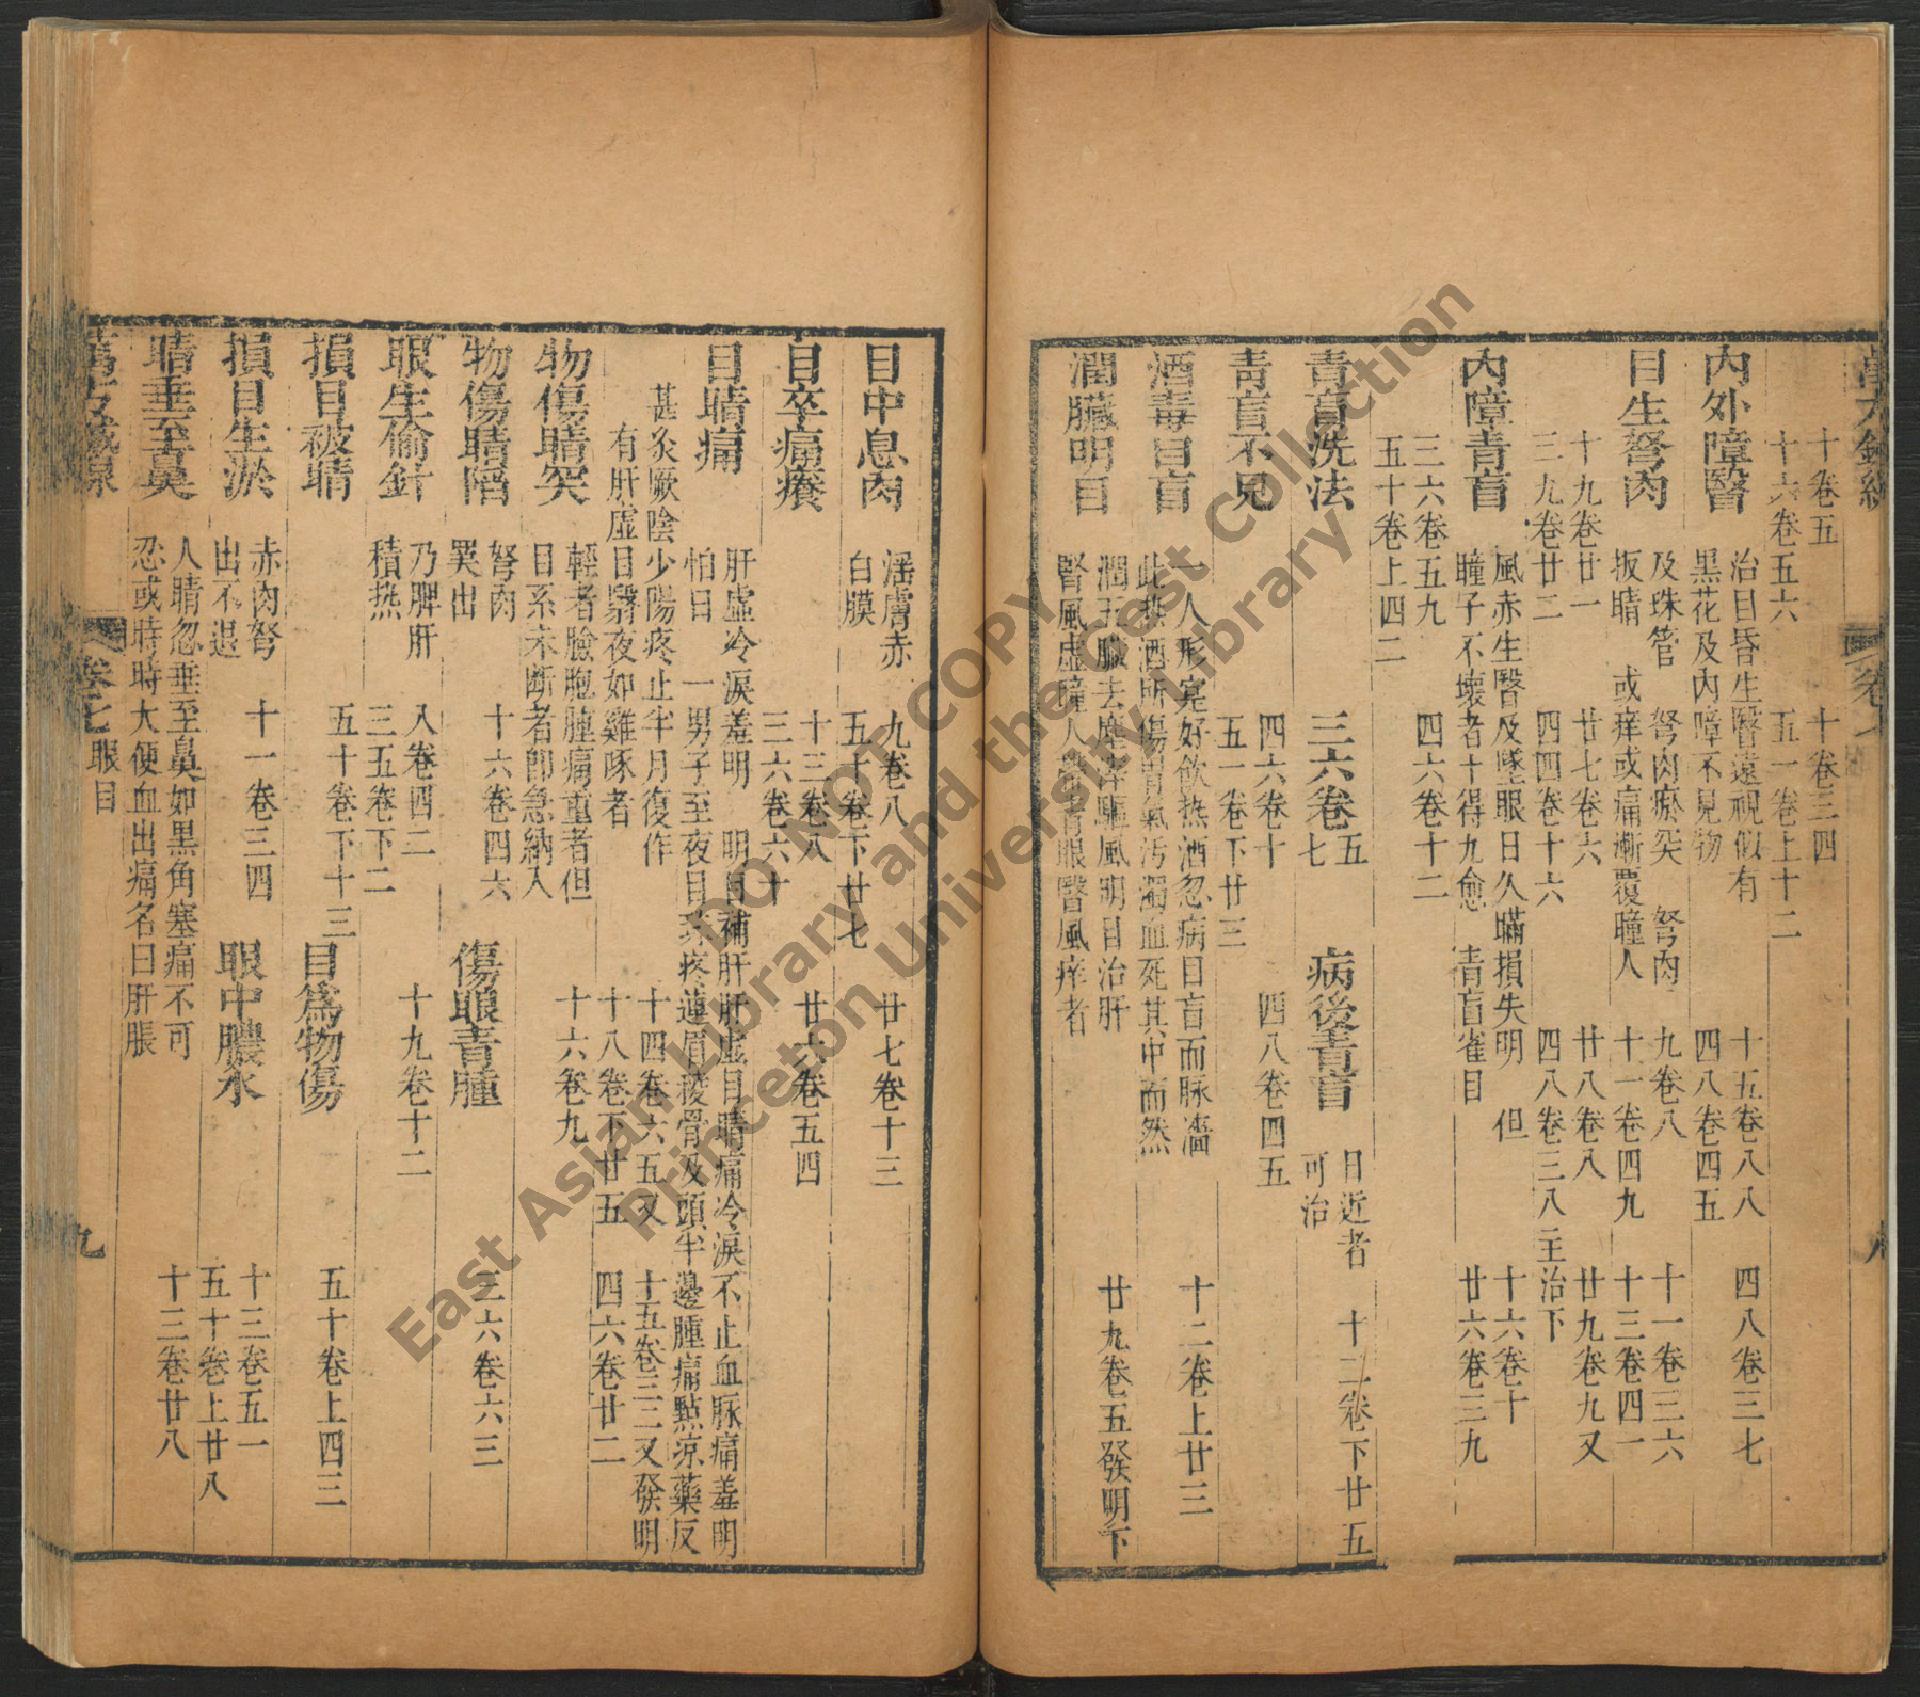 卷七
八
十卷五
十卷三四
十六卷五六
五一卷上十二
內外障瞖
治目昏生瞖遠視似有
黑花及內障不見物
十五卷八八
四八卷四五
四八卷三七
目生胬肉
及珠管
扳睛
胬肉瘀突
或痒或痛漸覆瞳人
胬肉
九卷八
十一卷四九
十一卷三六
十三卷四一
十九卷廿一
廿七卷六
廿八卷八
廿九卷九又
三九卷廿二
四四卷十六
四八卷三八主治下
內障青盲
風赤生瞖及墜眼日久瞞損失明
但
瞳子不壞者十得九愈
青盲雀目
十六卷十
廿六卷三九
三六卷五九
四六卷十二
五十卷上四二
青盲洗法
三六卷五
七
病後青盲
日近者
可治
十二卷下廿五
青盲不見
四六卷十
四八卷四五
五一卷下廿三
酒毒目盲
一人形寔好飲热酒忽病目盲而脉濇
此热酒所傷胃氣汚濁血死其中而然
十二卷上廿三
潤臟明目
潤五臟去塵
驅風明目治肝
腎風虛瞳人
眼瞖風痒者
廿九卷五發明下
目中息肉
淫膚赤
白膜
九卷八
五十卷下廿七
廿七卷十三
目卒痛癢
十三卷八
三六卷六十
廿六卷五四
目睛痛
肝虛冷淚羞明
明目補肝肝虛目睛痛冷淚不止血脉痛羞明
怕日
一男子至夜目珠疼連眉稜骨及頭半邊腫痛點凉藥反
甚灸厥陰少陽疼止半月復作
十四卷六五又
十五卷三二又發明
有肝虛目翳夜如雞啄者
十八卷下廿五
四六卷廿二
物傷睛突
輕者臉胞腫痛重者但
目系未断者即急納入
十六卷九
物傷睛陷
胬肉
異出
十六卷四六
傷眼青腫
三六卷六三
眼生偷針
乃脾肝
積热
八卷四二
三五卷下二
十九卷十二
損目被睛
五十卷下十三
目爲物傷
五十卷上四三
損目生淤
赤肉胬
出不退
十一卷三四
眼中膿水
十三卷五一
五十卷上廿八
睛垂至鼻
人睛忽垂至鼻如黑角塞痛不可
忍或時時大便血出痛名曰肝脹
十三卷廿八
卷七
眼目
九
DO NOT COPY
East Asian Library and the Gest Collection
Princeton University Library